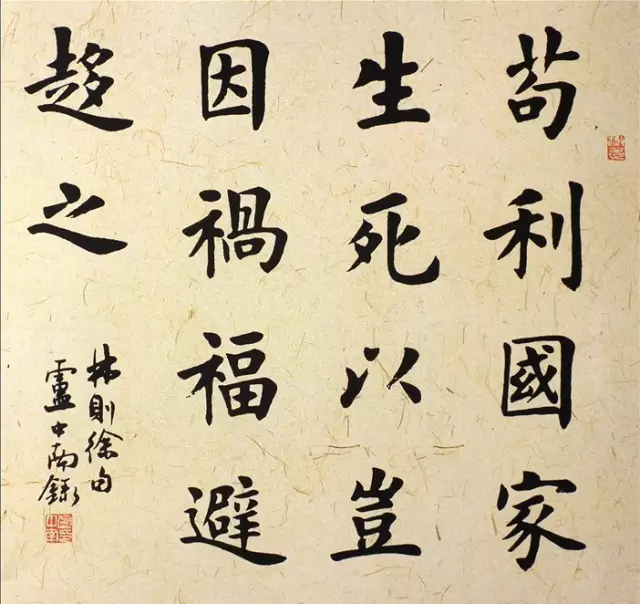 苟利國家
生死以豈
因禍福避
趍之
林則徐句
盧中南錄